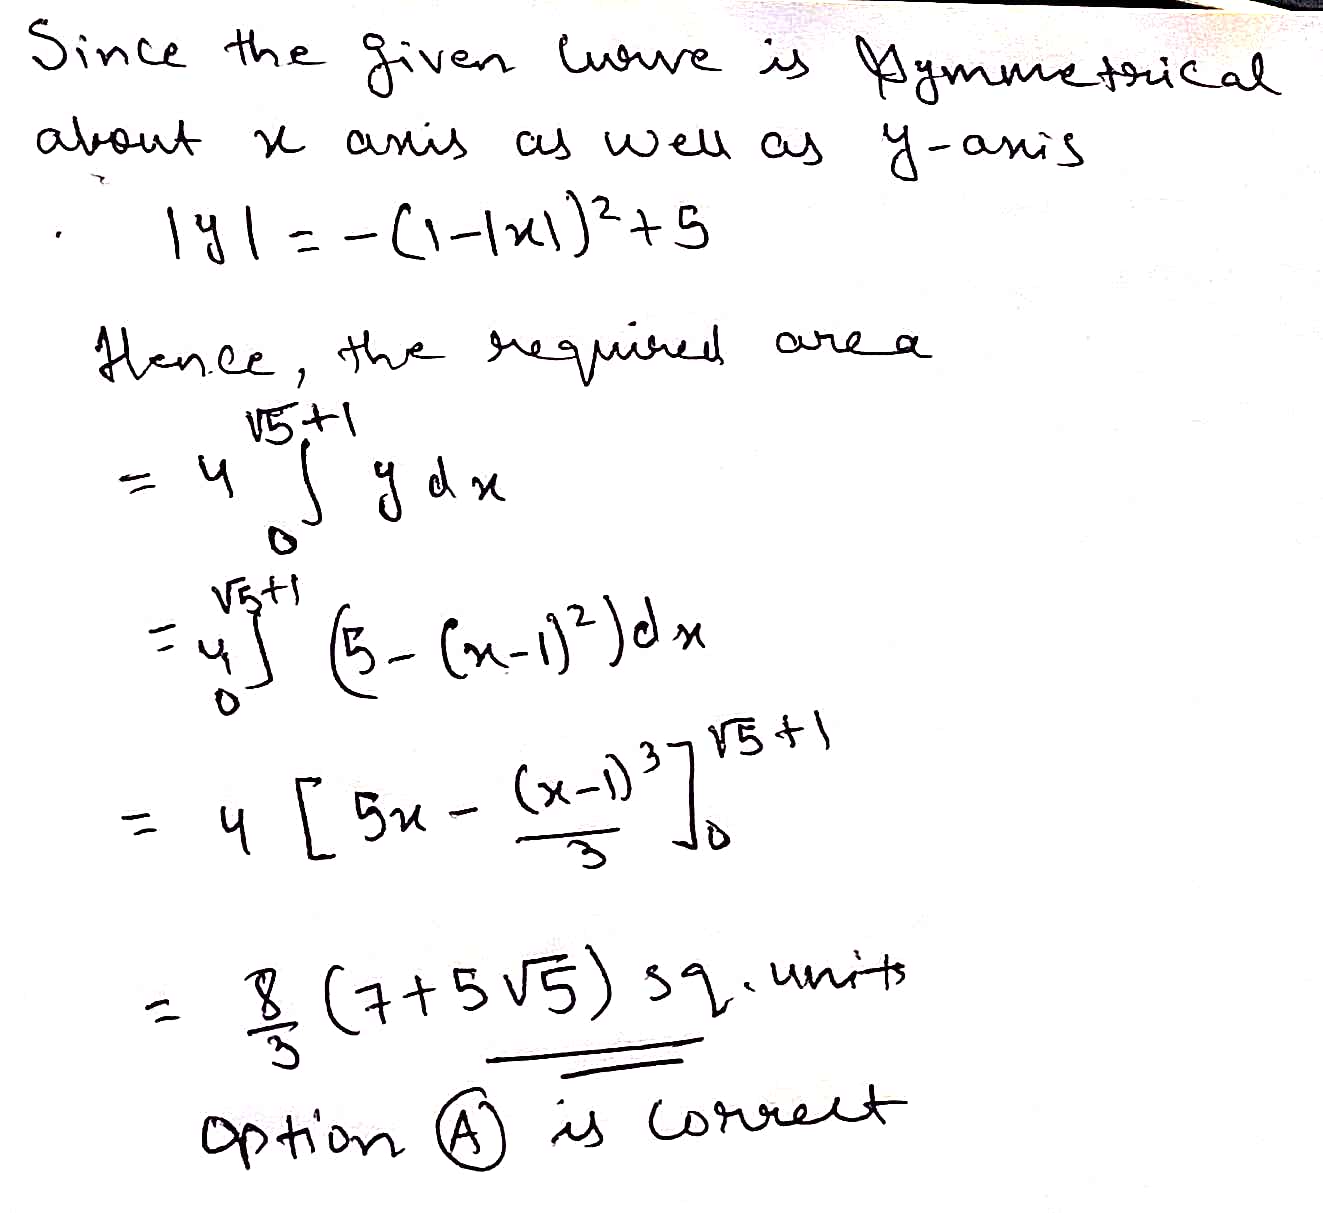 Since the given curve is symmetrical
about x axis as well as y-axis
|y| = -(1-|x|)²+5
Hence, the required area
= 4 ∫₀^(√5+1) y dx
= 4 ∫₀^(√5+1) (5-(x-1)²)dx
= 4 [5x - (x-1)³/3]₀^(√5+1)
= 8/3 (7+5√5) sq. units
option (A) is correct